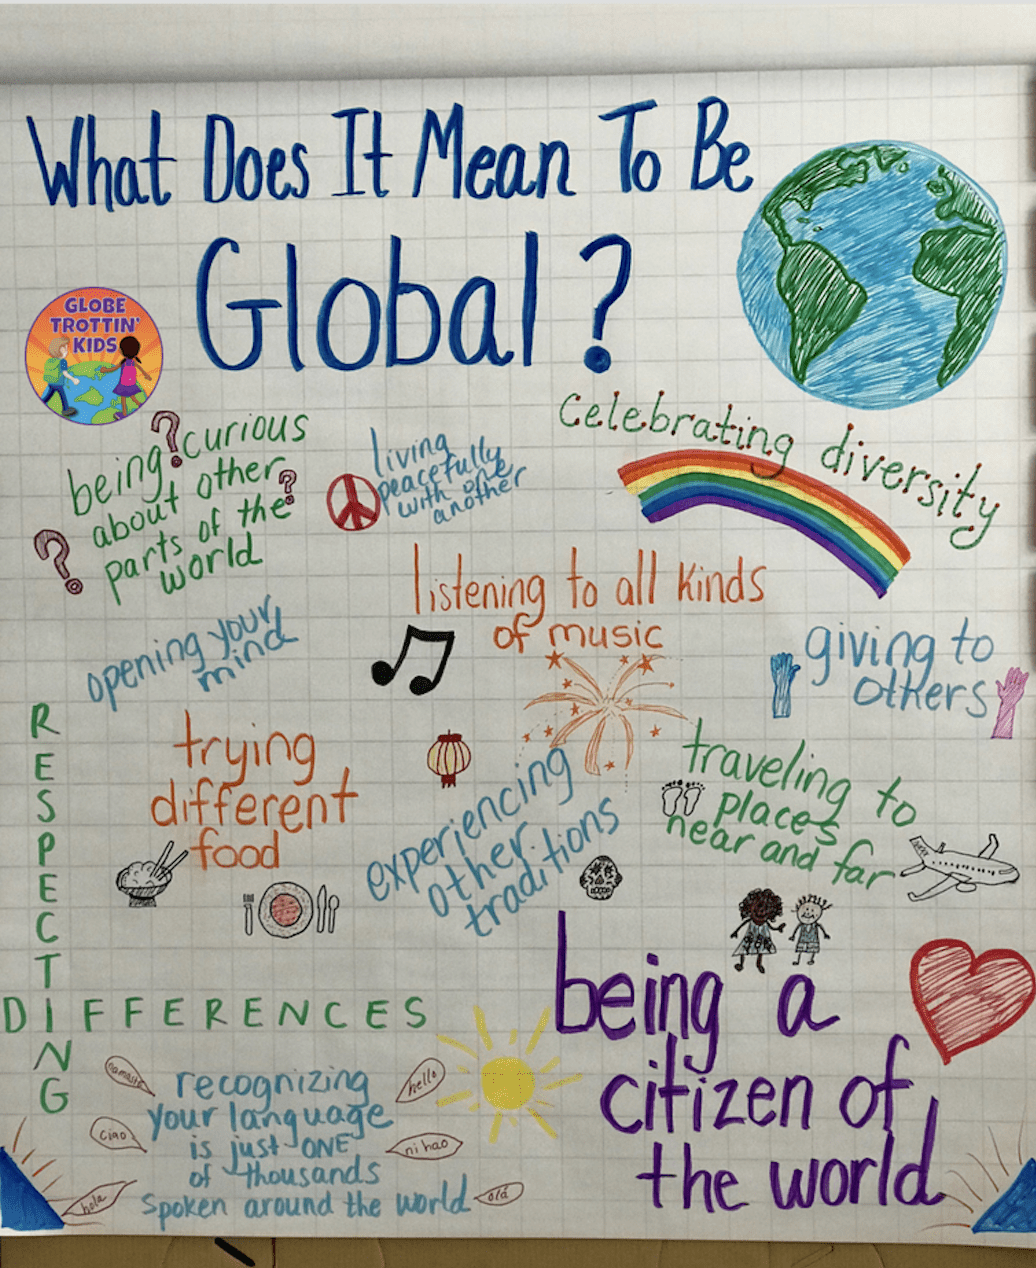 What Does It Mean To Be
Global?
GLOBE
TROTTIN'
KIDS
being ? curious
about other ?
parts of the
? world
living
peacefully
with one
another
celebrating diversity
listening to all kinds
of music
opening your
mind
giving to
others
trying
different
food
experiencing
other
traditions
traveling to
places
near and far
RESPECTING
DIFFERENCES
being a
citizen of
the world
recognizing
your language
is just ONE
of thousands
spoken around the world
namaste
hello
ciao
ni hao
hola
olá